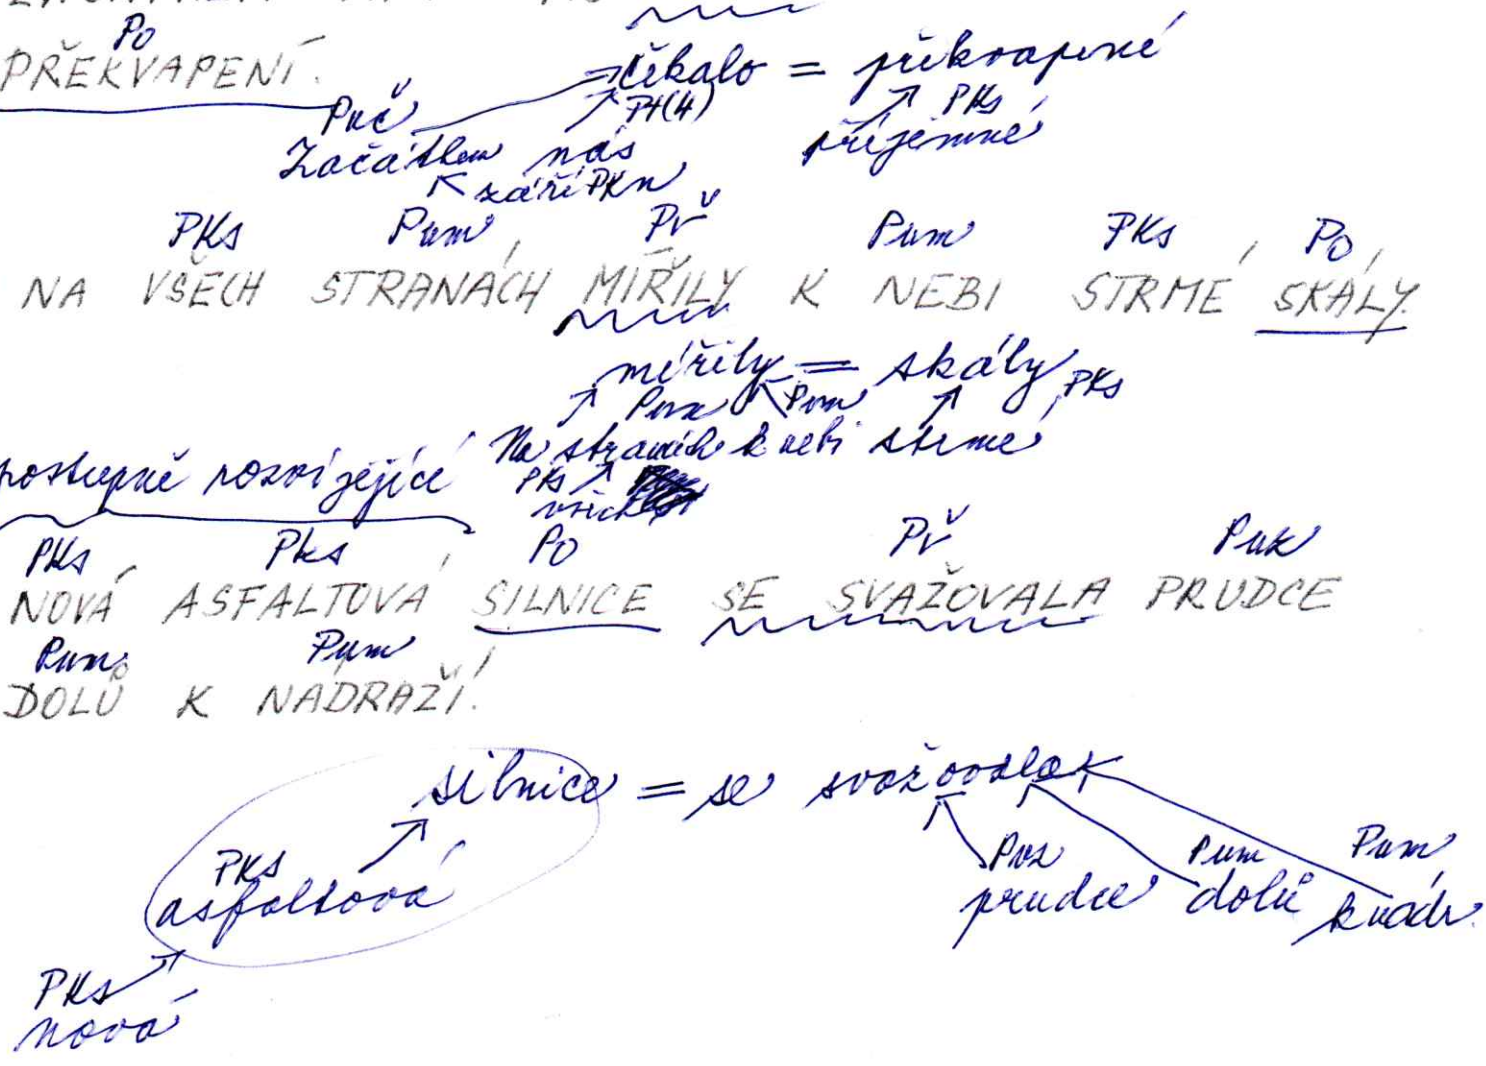 Po
PŘEKVAPENÍ.
čekalo = překvapené
Puč Pt(4) PKs
Začátkem nás příjemné
září PKn
PKs Pum Př Pum PKs Po
NA VŠECH STRANÁCH MÍŘILY K NEBI STRMÉ SKÁLY.
mířily = skály
Pum Pum PKs
Na stranách k nebi strmé
postupně rozvíjející PKs
všech
PKs Pks Po Př Puz
NOVÁ ASFALTOVÁ SILNICE SE SVAŽOVALA PRUDCE
Pum Pum
DOLŮ K NÁDRAŽÍ.
silnice = se svažovala
PKs Puz Pum Pum
asfaltová prudce dolů k nádr.
PKs
nová